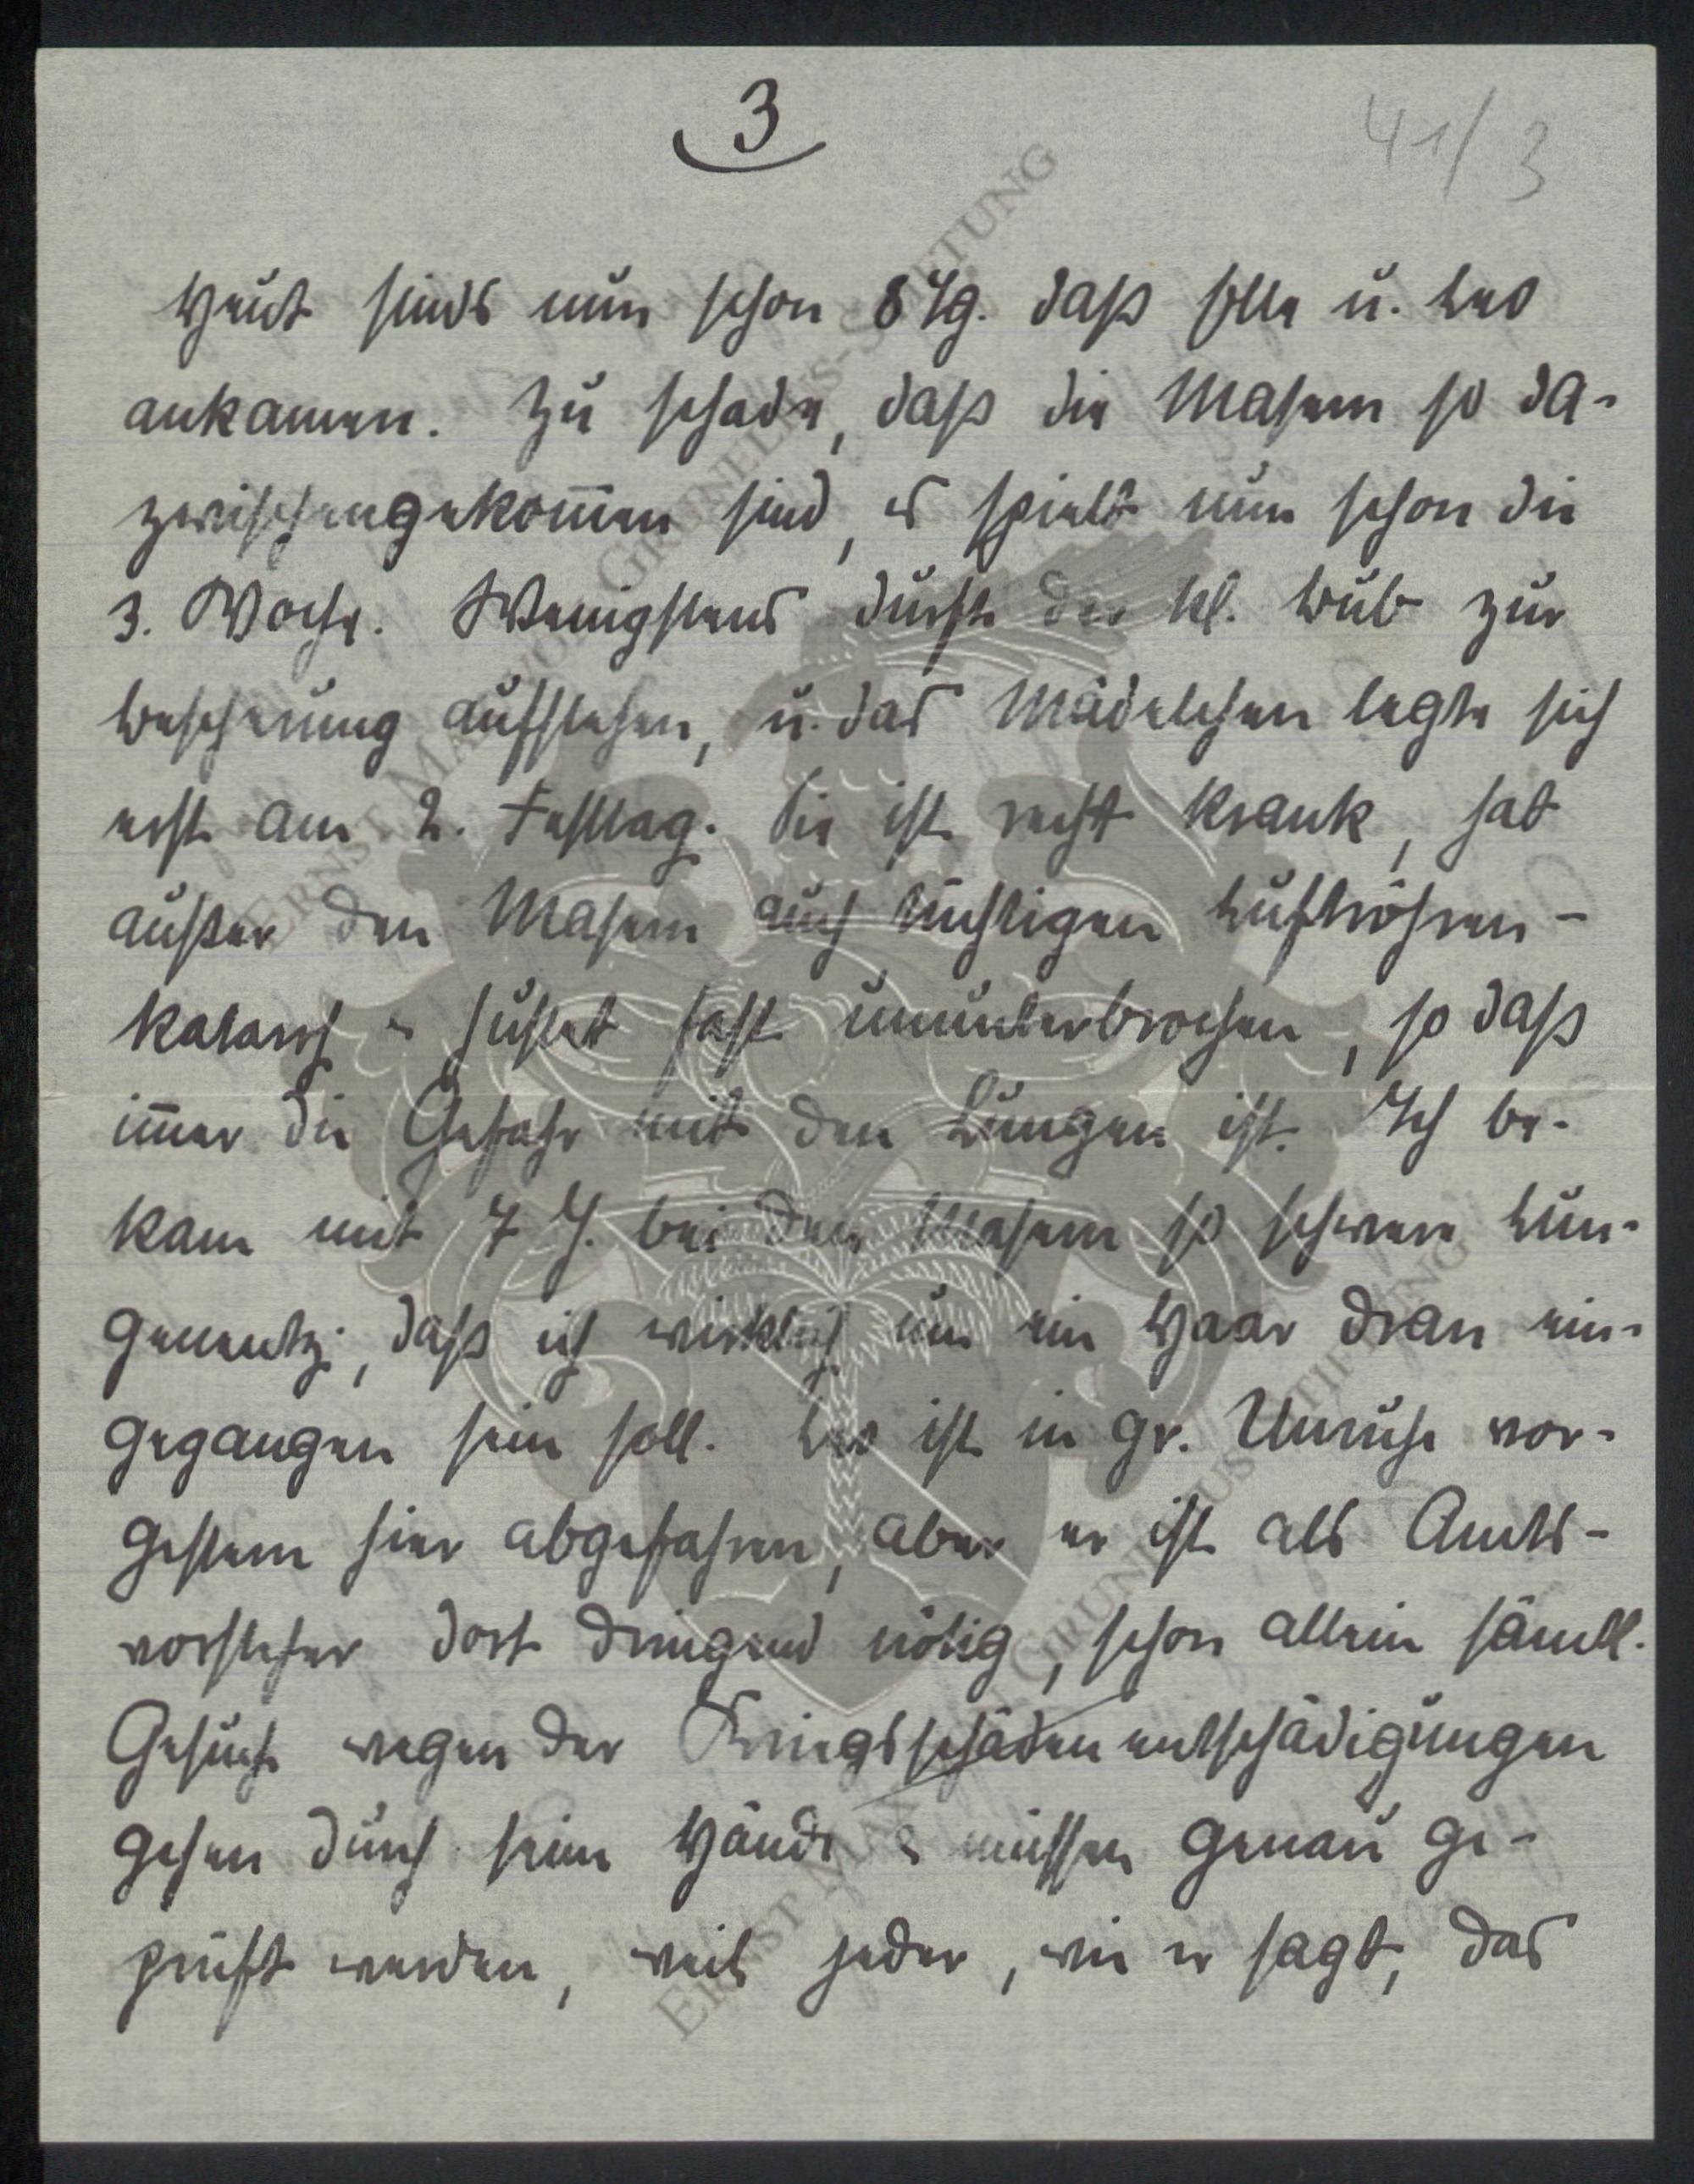 3
41/3
Heut sinds nun schon 8 Tg. daß Elle u. Leo
ankamen. Zu schade, daß die Masern so da-
zwischengekom̅en sind, es spielt nun schon die
3. Woche. Wenigstens durfte der kl. Bub zur
Bescherung aufstehen, u. das Mädelchen legte sich
erst am 2. Festtag. Sie ist recht krank, hat
außer den Masern auch tüchtigen Luftröhren-
katarrh & hustet fast ununterbrochen, so daß
im̅er die Gefahr mit den Lungen ist. Ich be-
kam mit 7 J. bei den Masern so schwere Lun-
genentz., daß ich wirklich um ein Haar dran ein-
gegangen sein soll. Leo ist in gr. Unruhe vor-
gestern hier abgefahren, aber er ist als Amts-
vorsteher dort dringend nötig, schon allein sämtl.
Gesuche wegen der Kriegsschäden entschädigungen
gehen durch seine Hände & müssen genau ge-
prüft werden, weil jeder, wie er sagt, das
ERNST MAX VON GRUNELIUS-STIFTUNG
ERNST MAX VON GRUNELIUS-STIFTUNG